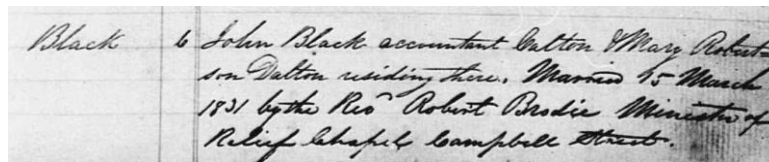 Black 6 John Black accountant Calton & Mary Robert-
son Dalton residing there. Married 15 March
1831 by the Revd Robert Brodie Minister of
Relief Chapel Campbell Street.